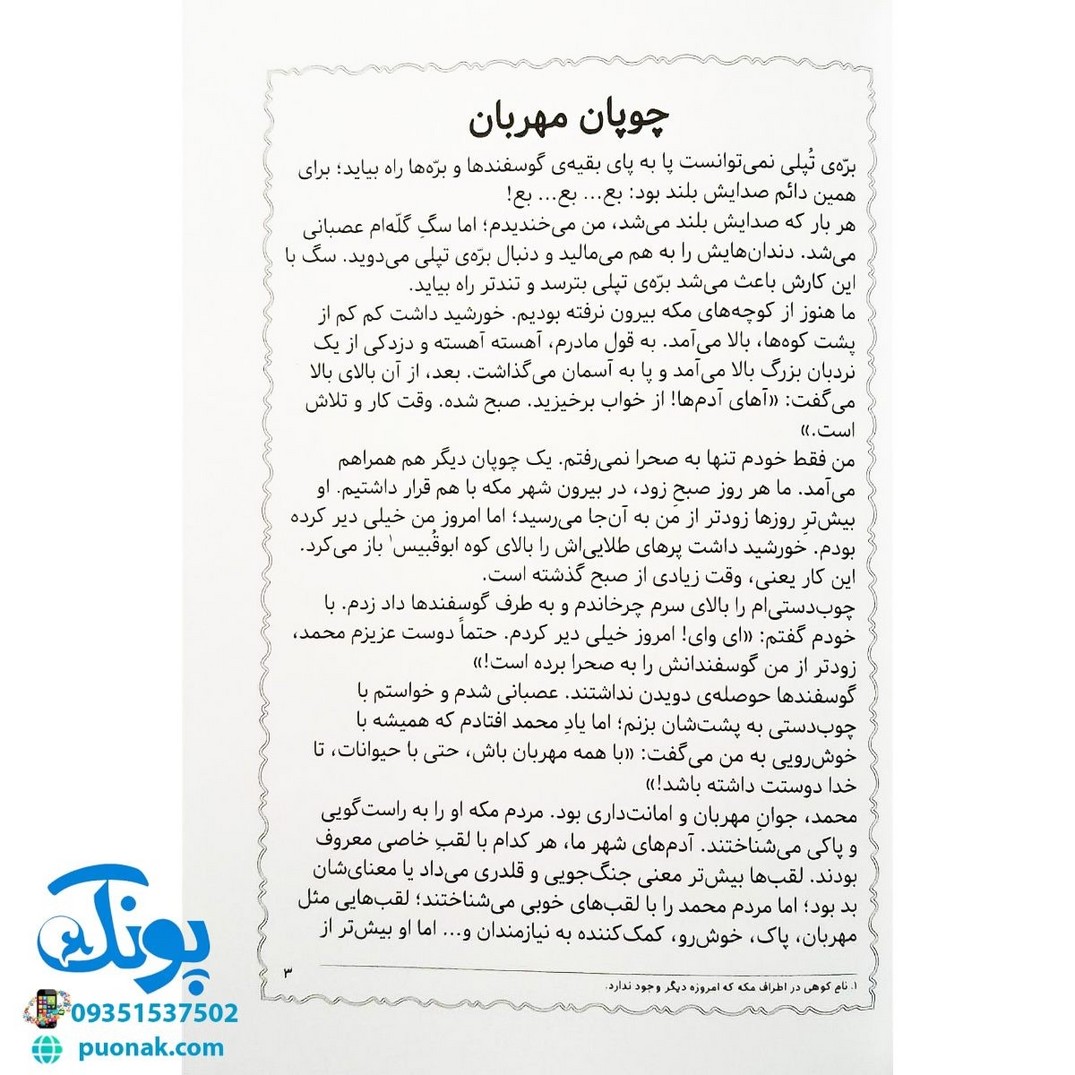 چوپان مهربان
برّه‌ی تُپلی نمی‌توانست پا به پای بقیه‌ی گوسفندها و برّه‌ها راه بیاید؛ برای
همین دائم صدایش بلند بود: بع... بع... بع!
هر بار که صدایش بلند می‌شد، من می‌خندیدم؛ اما سگِ گلّه‌ام عصبانی
می‌شد. دندان‌هایش را به هم می‌مالید و دنبال برّه‌ی تپلی می‌دوید. سگ با
این کارش باعث می‌شد برّه‌ی تپلی بترسد و تندتر راه بیاید.
ما هنوز از کوچه‌های مکه بیرون نرفته بودیم. خورشید داشت کم کم از
پشت کوه‌ها، بالا می‌آمد. به قول مادرم، آهسته آهسته و دزدکی از یک
نردبان بزرگ بالا می‌آمد و پا به آسمان می‌گذاشت. بعد، از آن بالای بالا
می‌گفت: «آهای آدم‌ها! از خواب برخیزید. صبح شده. وقت کار و تلاش
است.»
من فقط خودم تنها به صحرا نمی‌رفتم. یک چوپان دیگر هم همراهم
می‌آمد. ما هر روز صبحِ زود، در بیرون شهر مکه با هم قرار داشتیم. او
بیش‌ترِ روزها زودتر از من به آن‌جا می‌رسید؛ اما امروز من خیلی دیر کرده
بودم. خورشید داشت پرهای طلایی‌اش را بالای کوه ابوقُبیس۱ باز می‌کرد.
این کار یعنی، وقت زیادی از صبح گذشته است.
چوب‌دستی‌ام را بالای سرم چرخاندم و به طرف گوسفندها داد زدم. با
خودم گفتم: «ای وای! امروز خیلی دیر کردم. حتماً دوست عزیزم محمد،
زودتر از من گوسفندانش را به صحرا برده است!»
گوسفندها حوصله‌ی دویدن نداشتند. عصبانی شدم و خواستم با
چوب‌دستی به پشت‌شان بزنم؛ اما یادِ محمد افتادم که همیشه با
خوش‌رویی به من می‌گفت: «با همه مهربان باش، حتی با حیوانات، تا
خدا دوستت داشته باشد!»
محمد، جوانِ مهربان و امانت‌داری بود. مردم مکه او را به راست‌گویی
و پاکی می‌شناختند. آدم‌های شهر ما، هر کدام با لقبِ خاصی معروف
بودند. لقب‌ها بیش‌تر معنی جنگ‌جویی و قلدری می‌داد یا معنای‌شان
بد بود؛ اما مردم محمد را با لقب‌های خوبی می‌شناختند؛ لقب‌هایی مثل
مهربان، پاک، خوش‌رو، کمک‌کننده به نیازمندان و... اما او بیش‌تر از
۱. نامِ کوهی در اطراف مکه که امروزه دیگر وجود ندارد.
۳
پونک
09351537502
puonak.com